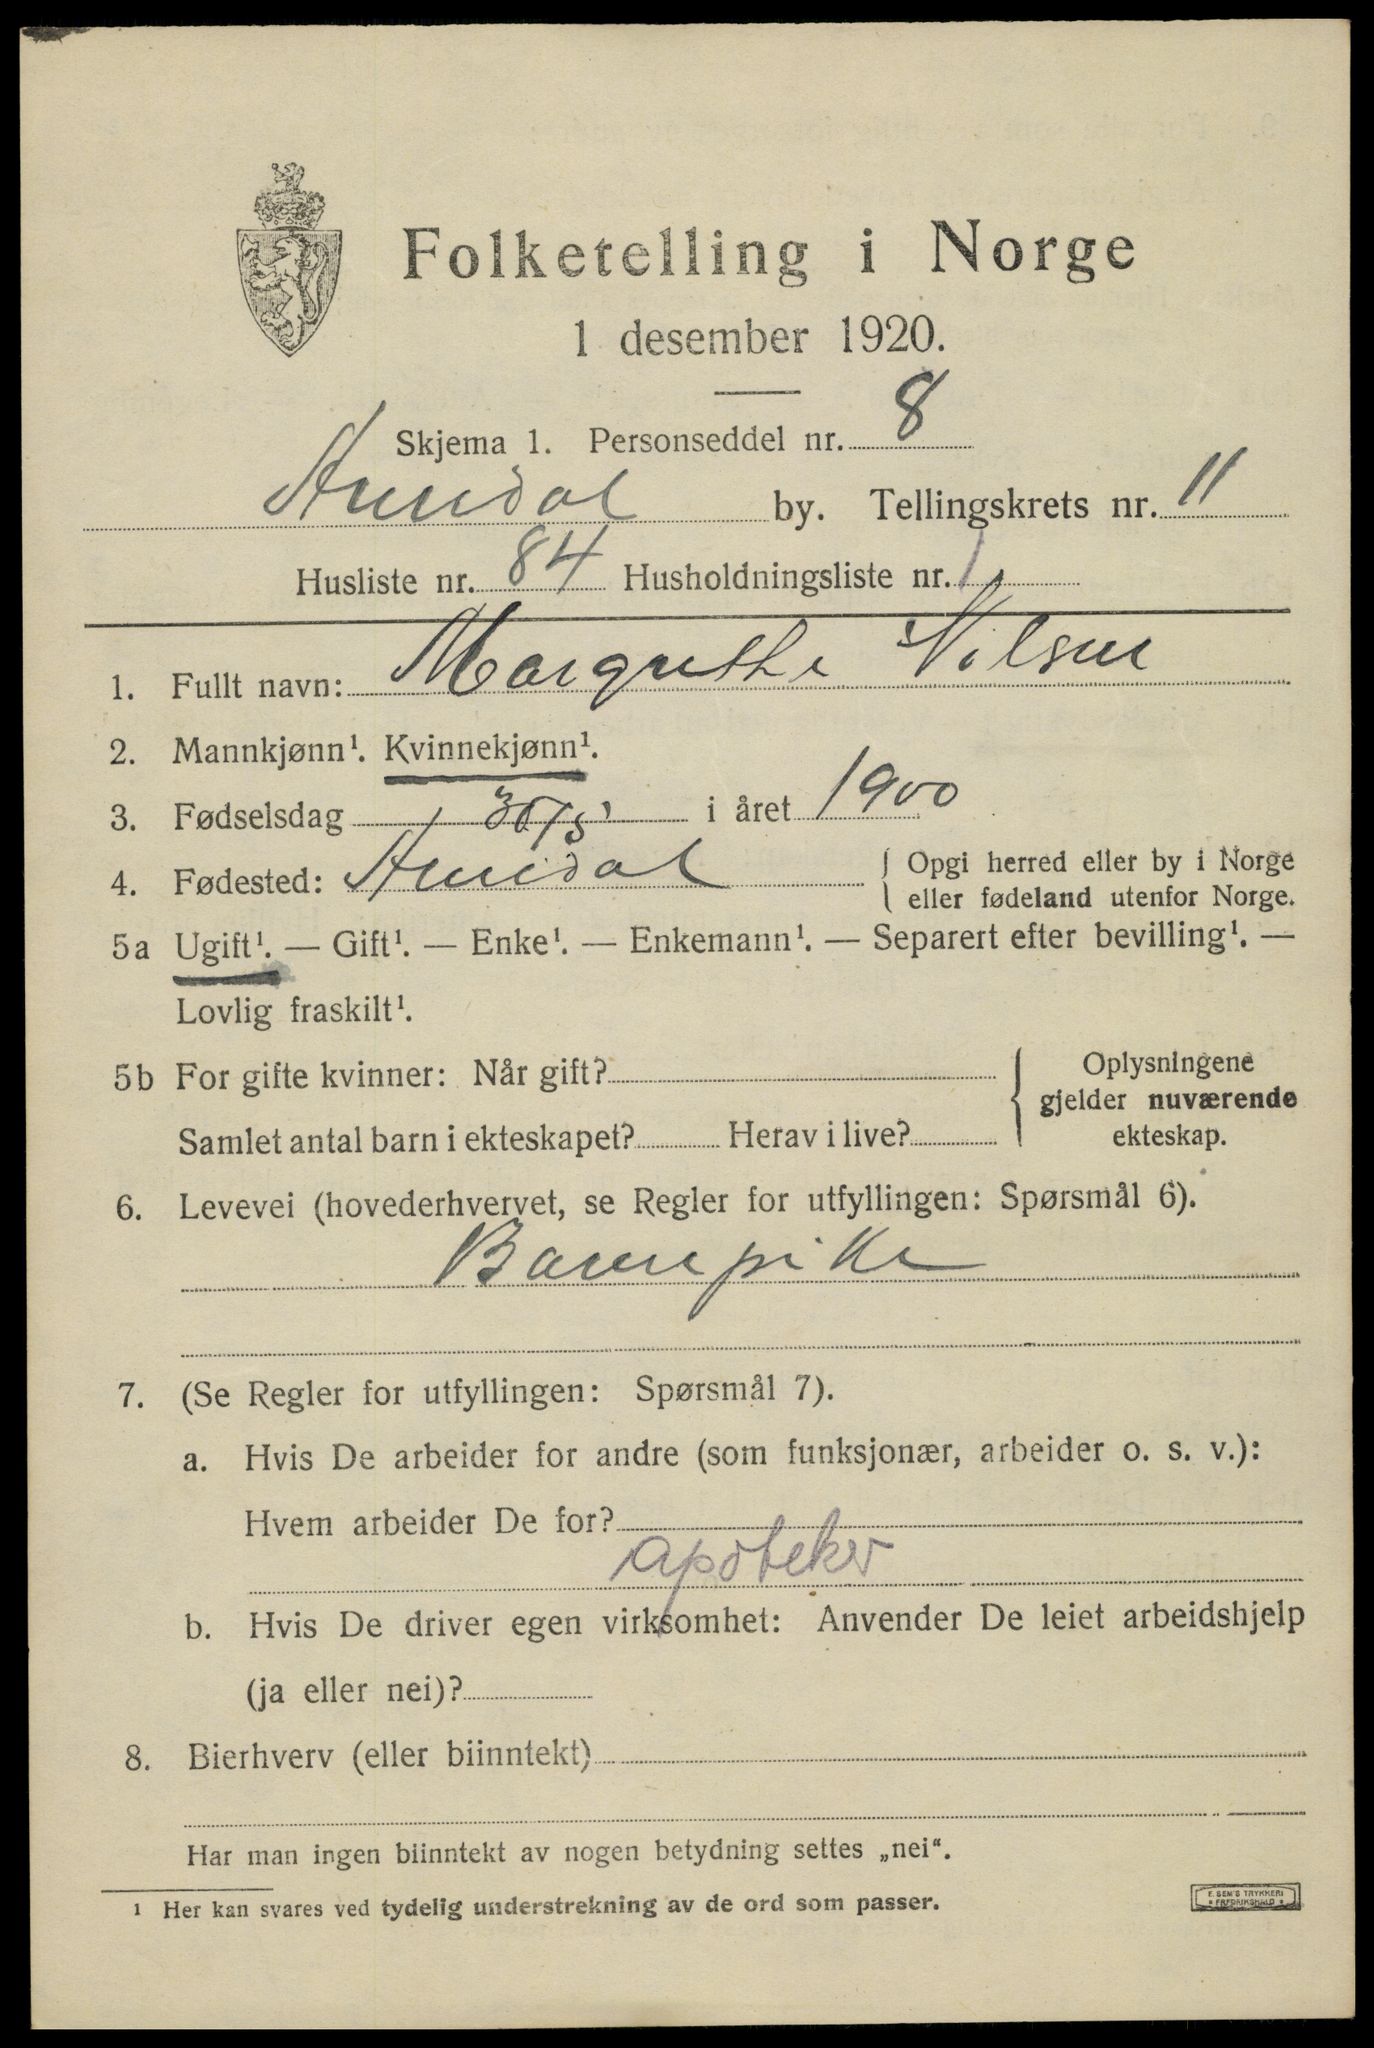 Folketelling i Norge
1 desember 1920.
Skjema 1. Personseddel nr. 8
Arendal by. Tellingskrets nr. 11
Husliste nr. 84 Husholdningsliste nr. 1
1. Fullt navn: Margrethe Nilsen
2. Mannkjønn¹. Kvinnekjønn¹.
3. Fødselsdag 30/5 i året 1900
4. Fødested: Arendal { Opgi herred eller by i Norge
eller fødeland utenfor Norge.
5a Ugift¹. — Gift¹. — Enke¹. — Enkemann¹. — Separert efter bevilling¹. —
Lovlig fraskilt¹.
5b For gifte kvinner: Når gift?
Samlet antal barn i ekteskapet? Herav i live?
{ Oplysningene
gjelder nuværende
ekteskap.
6. Levevei (hovederhvervet, se Regler for utfyllingen: Spørsmål 6).
Barnepike
7. (Se Regler for utfyllingen: Spørsmål 7).
a. Hvis De arbeider for andre (som funksjonær, arbeider o. s. v.):
Hvem arbeider De for?
apoteker
b. Hvis De driver egen virksomhet: Anvender De leiet arbeidshjelp
(ja eller nei)?
8. Bierhverv (eller biinntekt)
Har man ingen biinntekt av nogen betydning settes „nei“.
¹ Her kan svares ved tydelig understrekning av de ord som passer.
E. SEM'S TRYKKERI
* FREDRIKSHALD *